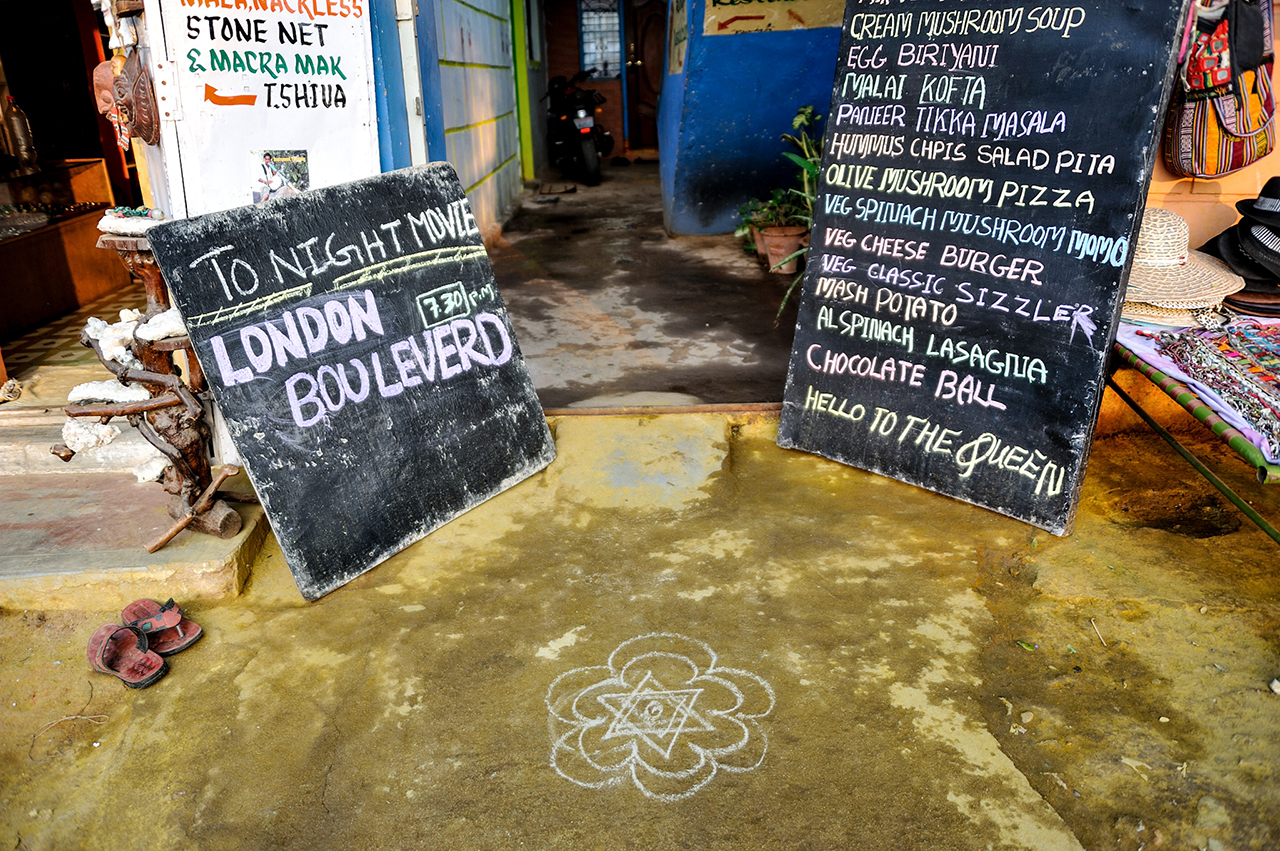 MALA, NACKLESS
STONE NET
& MACRA MAK
T.SHIVA
TO NIGHT MOVIE
7.30 P.M
LONDON
BOULEVERD
CREAM MUSHROOM SOUP
EGG BIRIYANI
MALAI KOFTA
PANEER TIKKA MASALA
HUMMUS CHPIS SALAD PITA
OLIVE MUSHROOM PIZZA
VEG SPINACH MUSHROOM MOMO
VEG CHEESE BURGER
VEG CLASSIC SIZZLER
MASH POTATO
ALSPINACH LASAGNIA
CHOCOLATE BALL
HELLO TO THE QUEEN